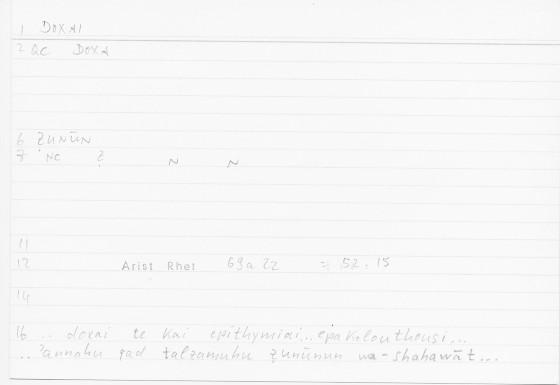 1 DOXAI
2 QC DOXA
6 ẒUNŪN
7 NC Ẓ N N
11
12 Arist Rhet 69a22 = 52.15
14
16 .. doxai te kai epithymiai.. epakolouthousi...
.. 'annahu qad talzamuhu ẓunūnun wa-shahawāt...